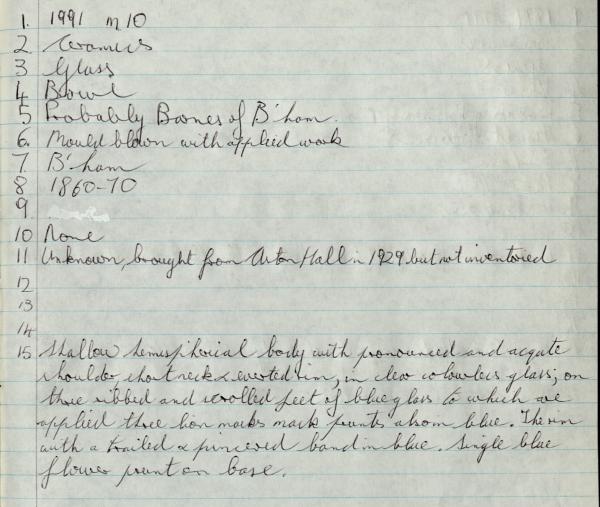 1. 1991 m10
2. Ceramics
3 Glass
4 Bowl
5 Probably Barnes of B'ham.
6. Mould blown with applied work
7. B'ham
8 1860-70
9.
10 None
11 Unknown, brought from Aston Hall in 1929 but not inventoried
12
13
14
15 Shallow hemispherical body with pronounced and acute
shoulder short neck & everted rim, in clear colourless glass; on
three ribbed and scrolled feet of blue glass to which are
applied three lion masks mask prunts also in blue. The rim
with a trailed & pincered band in blue. Single blue
flower prunt on base.